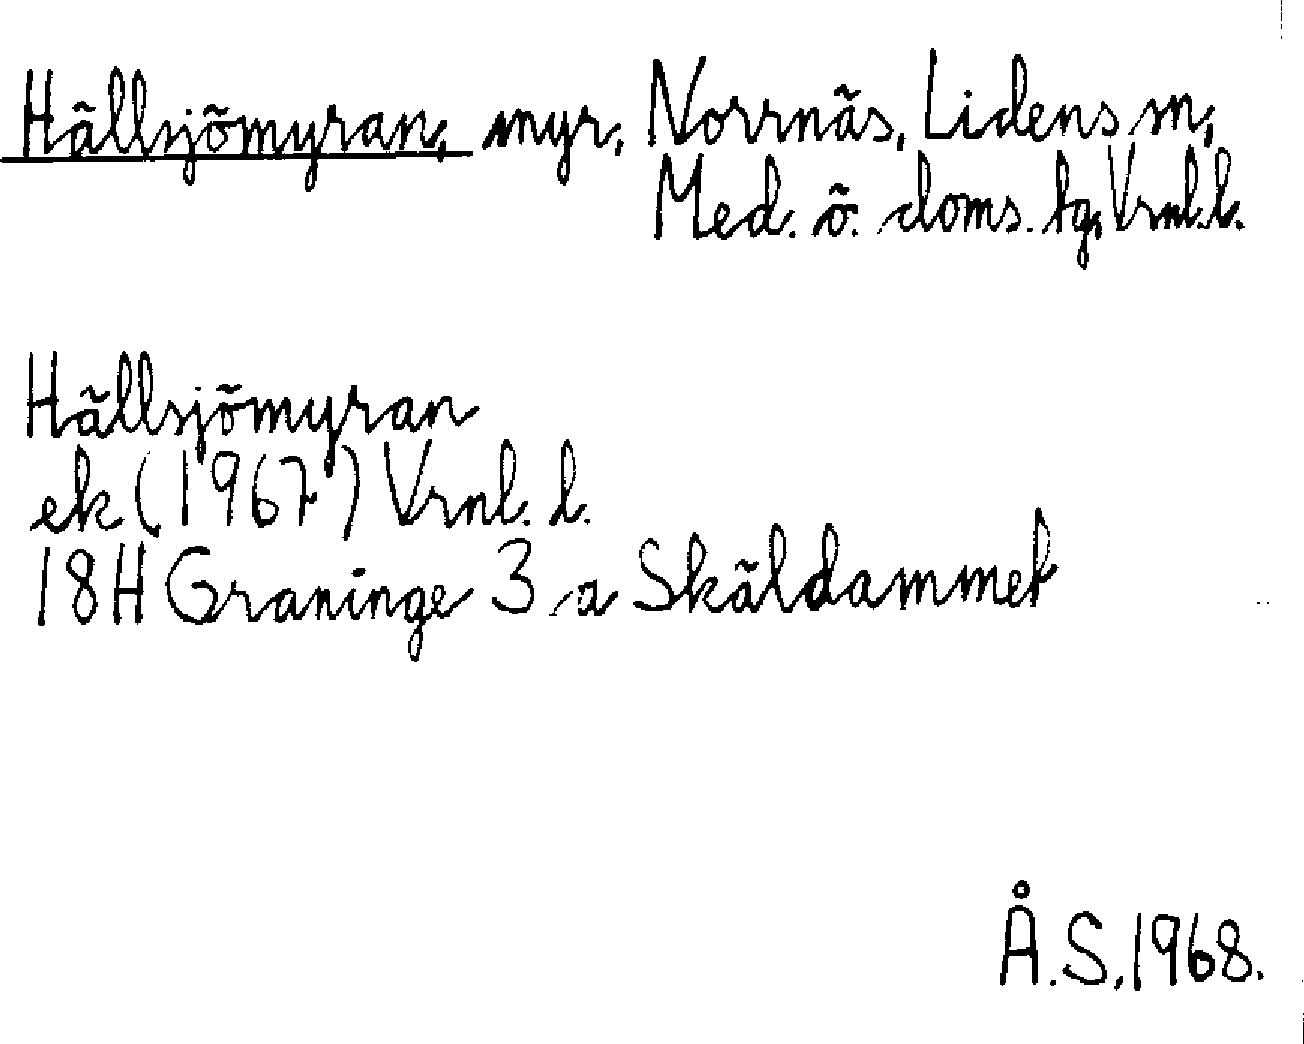 Hällsjömyran, myr, Norrnäs, Lidens sn,
Med. ö. doms. tg, Vrnl. l.
Hällsjömyran
ek (1967) Vrnl. l.
18H Graninge 3 a Skäldammet
Å.S., 1968.